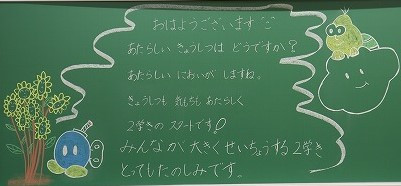 おはようございます
あたらしい きょうしつは どうですか？
あたらしい においが しますね。
きょうしつも 気もちも あたらしく
2学きの スタートです!
みんなが 大きく せいちょうする 2学き
とってもたのしみです。